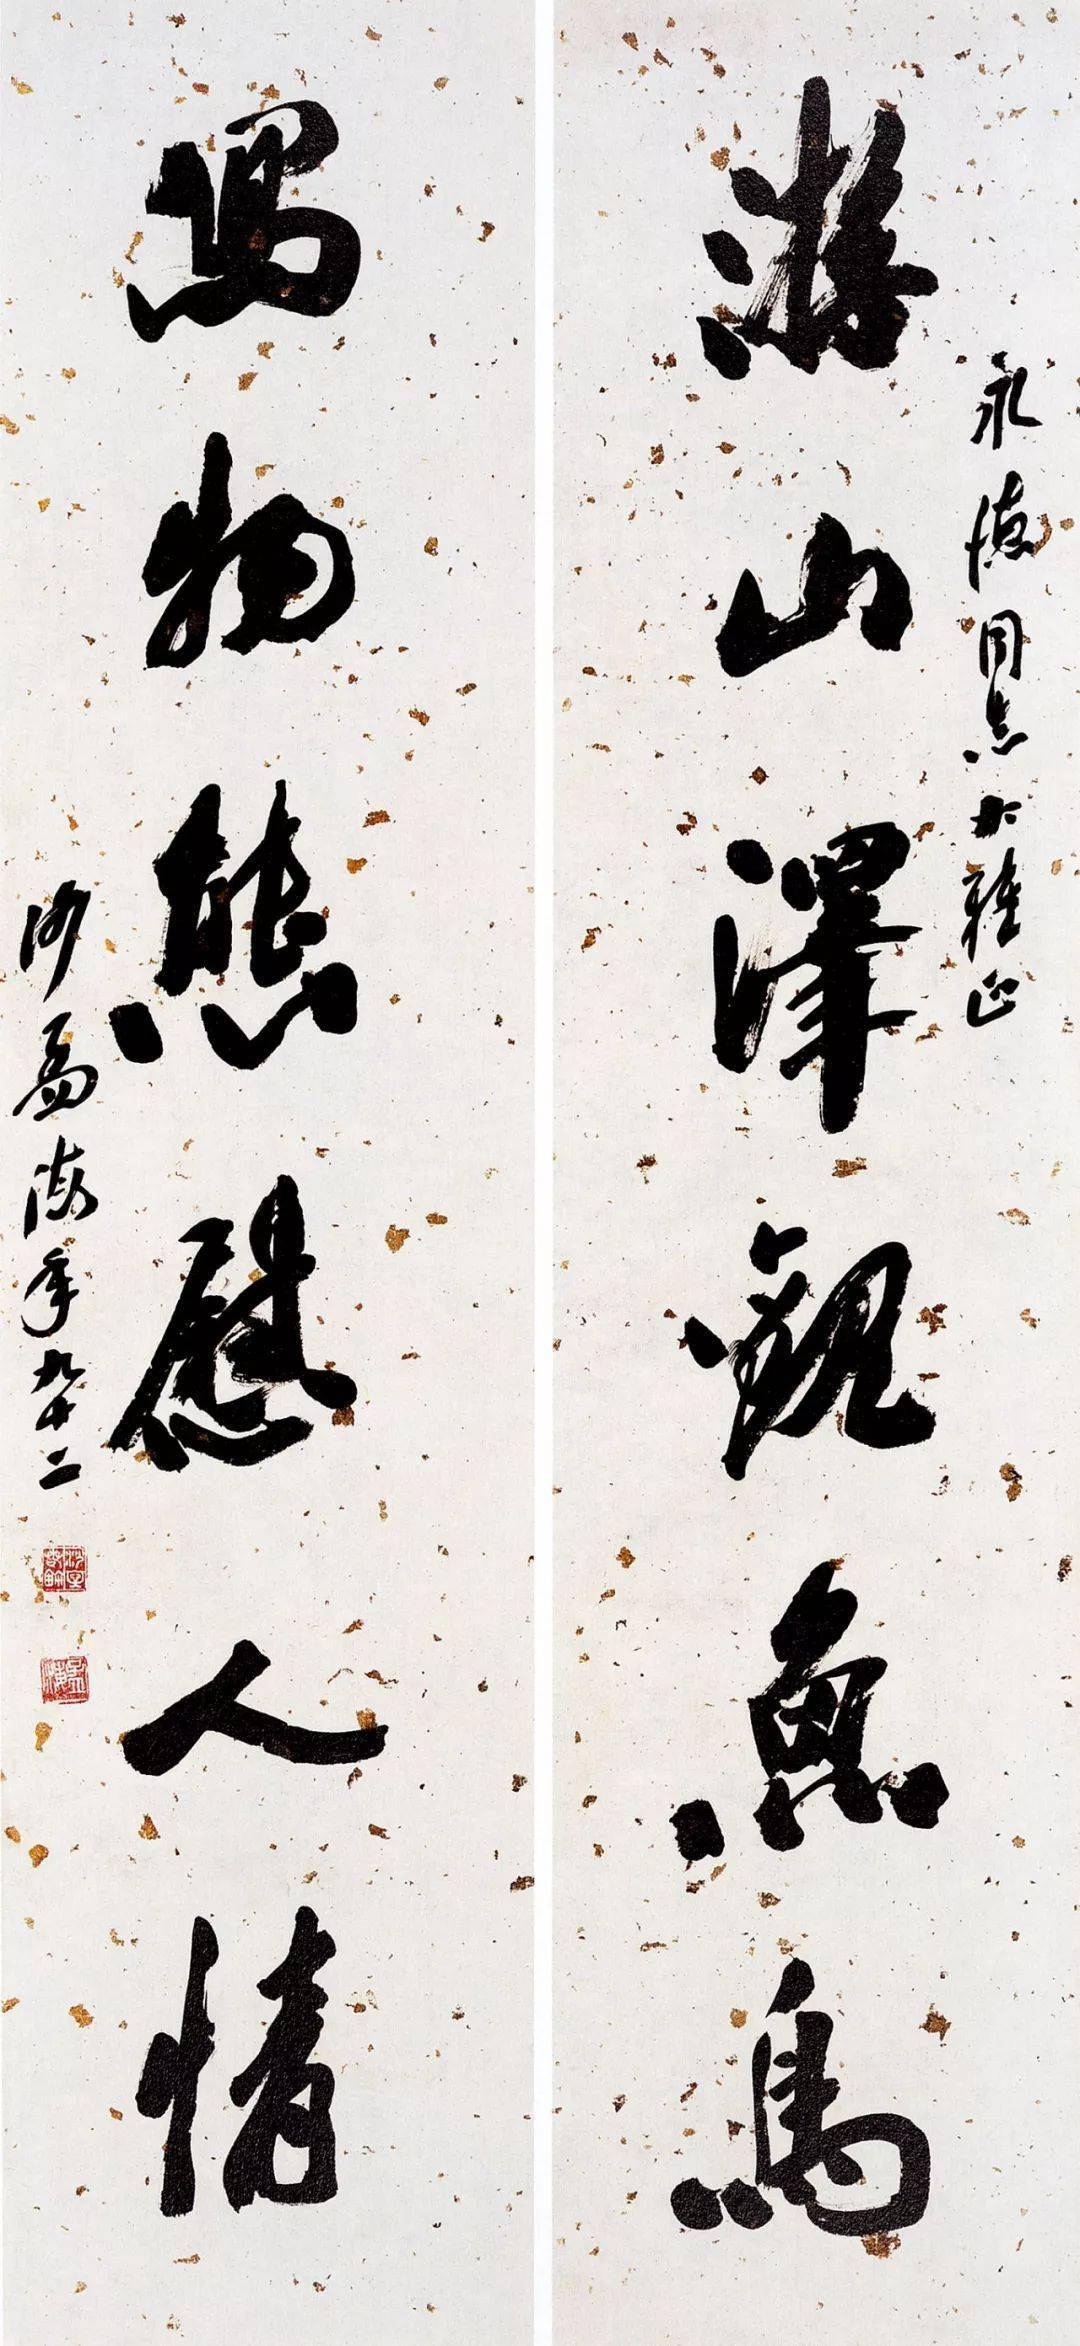 永德同志大雅正
游山澤觀魚鳥
寫物態慰人情
沙孟海年九十二